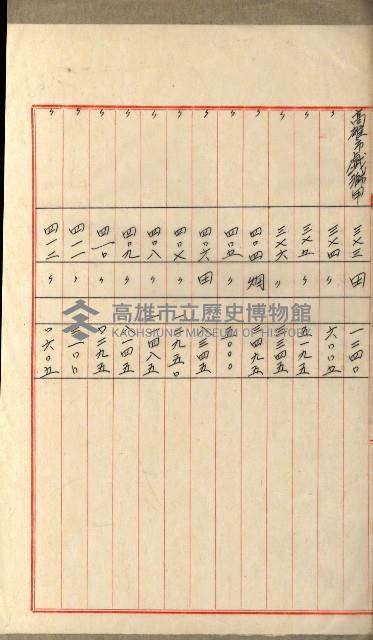 高雄市戲獅甲 三七三 田 一三四〇
〃 三七四 〃 六〇〇五
〃 三七五 〃 五一九五
〃 三七六 〃 一三四五
〃 四〇四 畑 三四九五
〃 四〇五 〃 五〇〇〇
〃 四〇六 田 三四五
〃 四〇七 〃 一九五〇
〃 四〇八 〃 四八五
〃 四〇九 〃 一四五
〃 四一〇 〃 〇二九五
〃 四一一 〃 三一〇〇
〃 四一二 〃 〇六〇五
高雄市立歷史博物館
KAOHSIUNG MUSEUM OF HISTORY